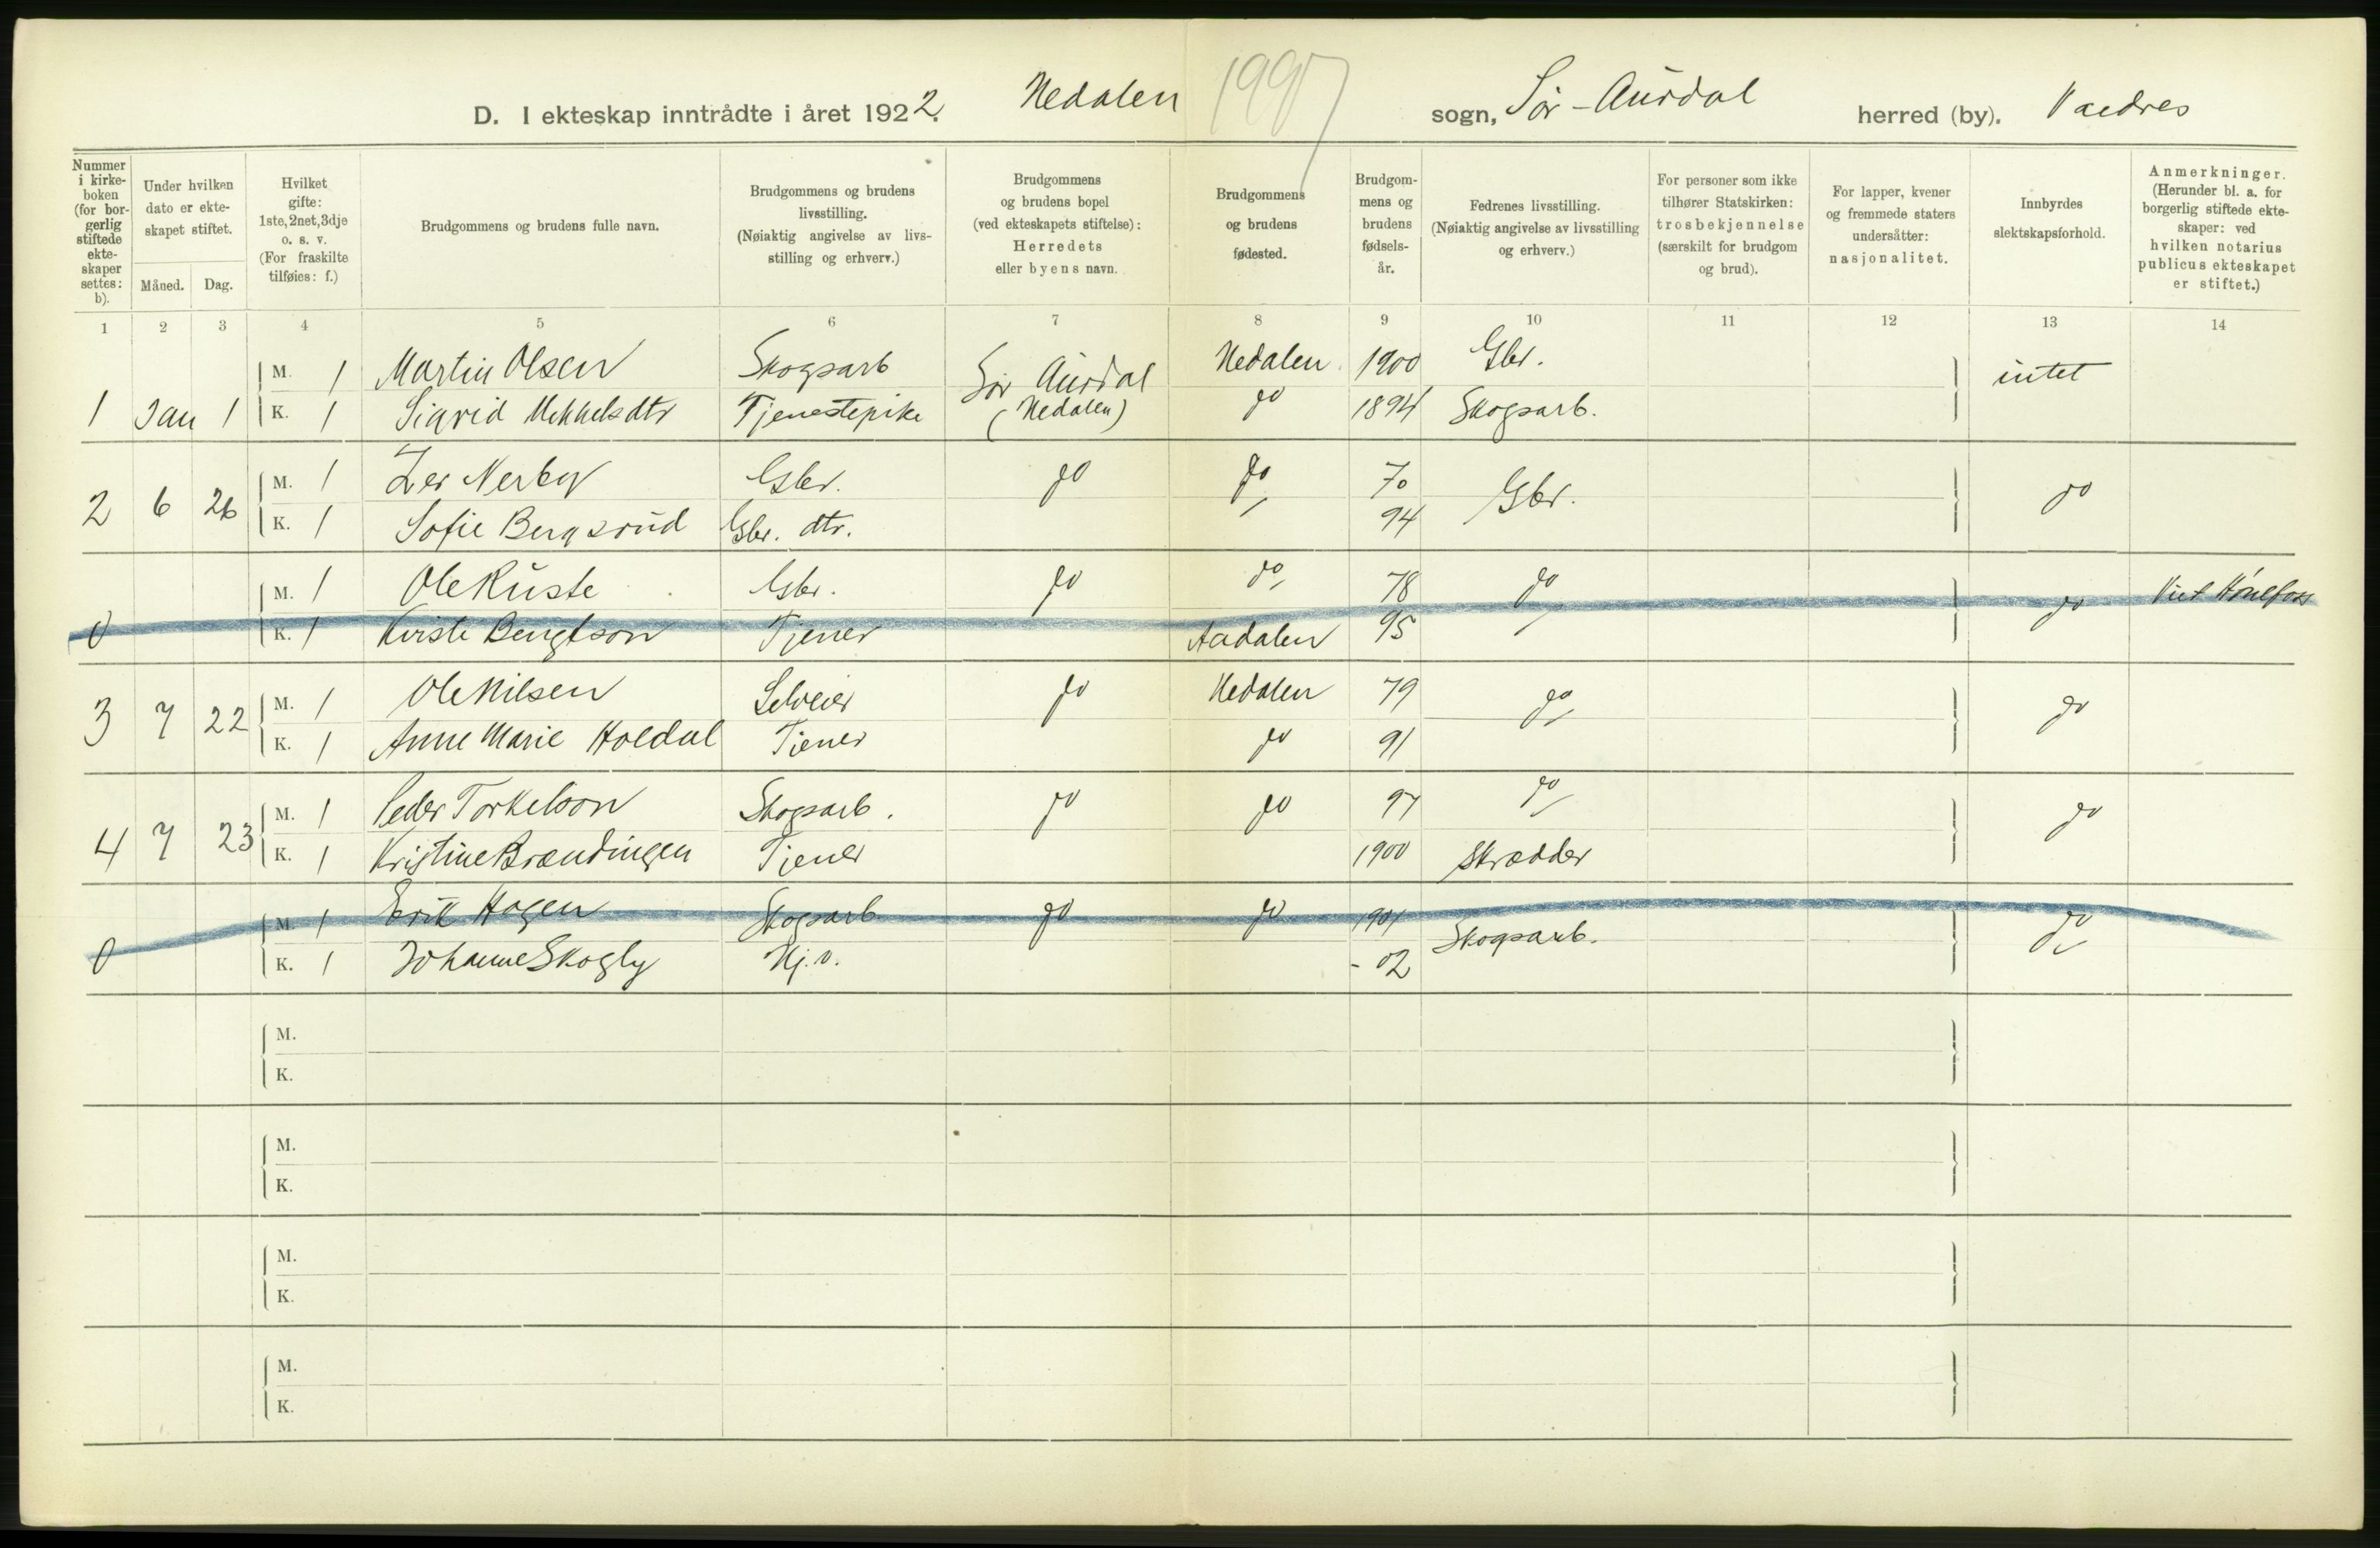 D. I ekteskap inntrådte i året 1922. Hedalen 1997 sogn, Sør-Aurdal herred (by). Valdres
Nummer i kirke-boken (for bor-gerlig stiftede ekte-skaper settes: b).
Under hvilken dato er ekte-skapet stiftet.
Måned. Dag.
Hvilket gifte: 1ste, 2net, 3dje o. s. v. (For fraskilte tilføies: f.)
Brudgommens og brudens fulle navn.
Brudgommens og brudens livsstilling. (Nøiaktig angivelse av livs-stilling og erhverv.)
Brudgommens og brudens bopel (ved ekteskapets stiftelse): Herredets eller byens navn.
Brudgommens og brudens fødested.
Brudgom-mens og brudens fødsels-år.
Fedrenes livsstilling. (Nøiaktig angivelse av livsstilling og erhverv.)
For personer som ikke tilhører Statskirken: trosbekjennelse (særskilt for brudgom og brud).
For lapper, kvener og fremmede staters undersåtter: nasjonalitet.
Innbyrdes slektskapsforhold.
Anmerkninger. (Herunder bl. a. for borgerlig stiftede ekte-skaper: ved hvilken notarius publicus ekteskapet er stiftet.)
1 2 3 4 5 6 7 8 9 10 11 12 13 14
M. 1 Martin Olsen Skogsarb Sør Aurdal Hedalen 1900 Gbr. intet
1 Jan 1 K. 1 Sigrid Mikkelsdtr Tjenestepike (Hedalen) do 1894 Skogsarb.
M. 1 Nerby Gbr. do do 70 Gbr. do
2 6 26 K. 1 Sofie Bergsrud Gbr. dtr. 94
M. 1 Ole Ruste Gbr. do do 78 do do Hønefoss
0 K. 1 Kirsti Bengtson Tjener Aadalen 95
M. 1 Ole Nilsen Selveier do Hedalen 79 do do
3 7 22 K. 1 Anne Marie Hoedal Tjener do 91
M. 1 Peder Torkelson Skogsarb. do do 97 do do
4 7 23 K. 1 Kristine Brændingen Tjener 1900 Skrædder
M. 1 Erik Hagen Skogsarb do do 1901 Skogsarb. do
0 K. 1 Johanne Skogly Hj.v. - 02
M.
K.
M.
K.
M.
K.
M.
K.